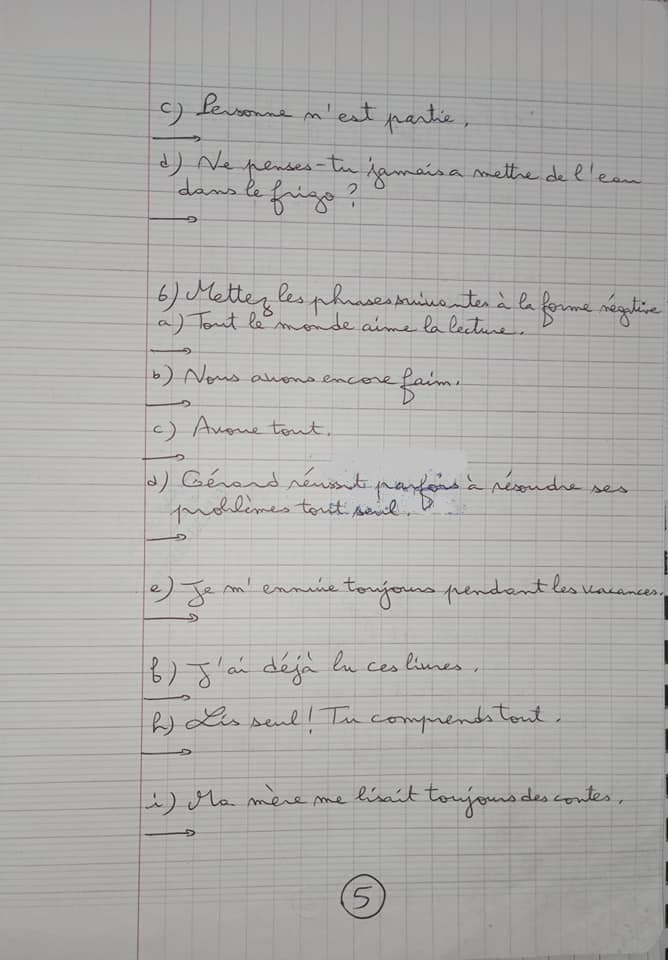 c) Personne n'est partie.
d) Ne penses-tu jamais a mettre de l'eau
dans le frigo ?
6) Mettez les phrases suivantes à la forme négative
a) Tout le monde aime la lecture.
b) Nous avons encore faim.
c) Avoue tout.
d) Gérard réussit parfois à résoudre ses
problèmes tout seul.
e) Je m'ennuie toujours pendant les vacances.
f) J'ai déjà lu ces livres.
h) Lis seul ! Tu comprends tout.
i) Ma mère me lisait toujours des contes.
5